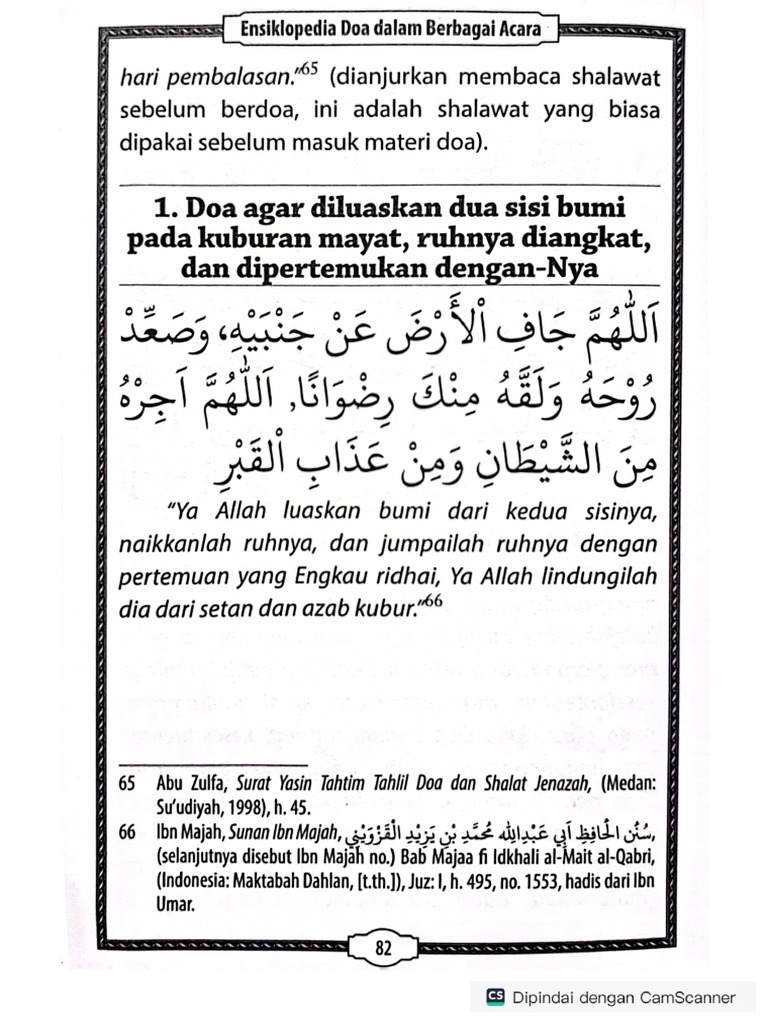 Ensiklopedia Doa dalam Berbagai Acara
hari pembalasan."65 (dianjurkan membaca shalawat
sebelum berdoa, ini adalah shalawat yang biasa
dipakai sebelum masuk materi doa).
1. Doa agar diluaskan dua sisi bumi
pada kuburan mayat, ruhnya diangkat,
dan dipertemukan dengan-Nya
اَللّٰهُمَّ جَافِ الْأَرْضَ عَنْ جَنْبَيْهِ، وَصَعِّدْ
رُوْحَهُ وَلَقَّهُ مِنْكَ رِضْوَانًا, اَللّٰهُمَّ اَجِرْهُ
مِنَ الشَّيْطَانِ وَمِنْ عَذَابِ الْقَبْرِ
"Ya Allah luaskan bumi dari kedua sisinya,
naikkanlah ruhnya, dan jumpailah ruhnya dengan
pertemuan yang Engkau ridhai, Ya Allah lindungilah
dia dari setan dan azab kubur."66
65 Abu Zulfa, Surat Yasin Tahtim Tahlil Doa dan Shalat Jenazah, (Medan:
Su'udiyah, 1998), h. 45.
66 Ibn Majah, Sunan Ibn Majah, سُنُن الْحَافِظِ اَبِي عَبْدِاللّٰه مُحَمَّدِ بْنِ يَزِيْدِ الْقَزْوِيْنِي,
(selanjutnya disebut Ibn Majah no.) Bab Majaa fi Idkhali al-Mait al-Qabri,
(Indonesia: Maktabah Dahlan, [t.th.]), Juz: I, h. 495, no. 1553, hadis dari Ibn
Umar.
82
CS Dipindai dengan CamScanner